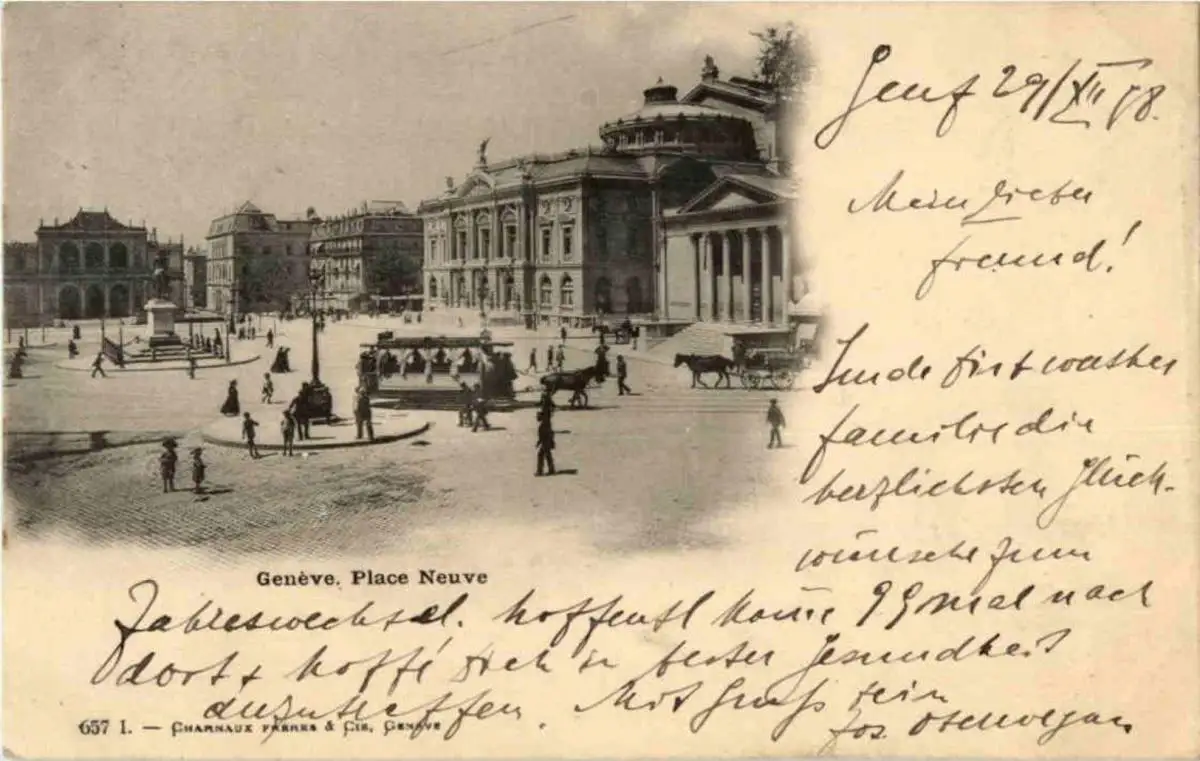 Genf 29/XII 98.
Mein lieber
Freund!
Sende Dir & werther
Familie die
herzlichsten Glück-
wünsche zum
Genève. Place Neuve
Jahreswechsel. Hoffentl. komme 99 mal nach
dort & hoffe Dich in bester Gesundheit
anzutreffen. Mit Gruß Dein
Jos.
657 I. — CHARNAUX FRÈRES & CIE, GENÈVE